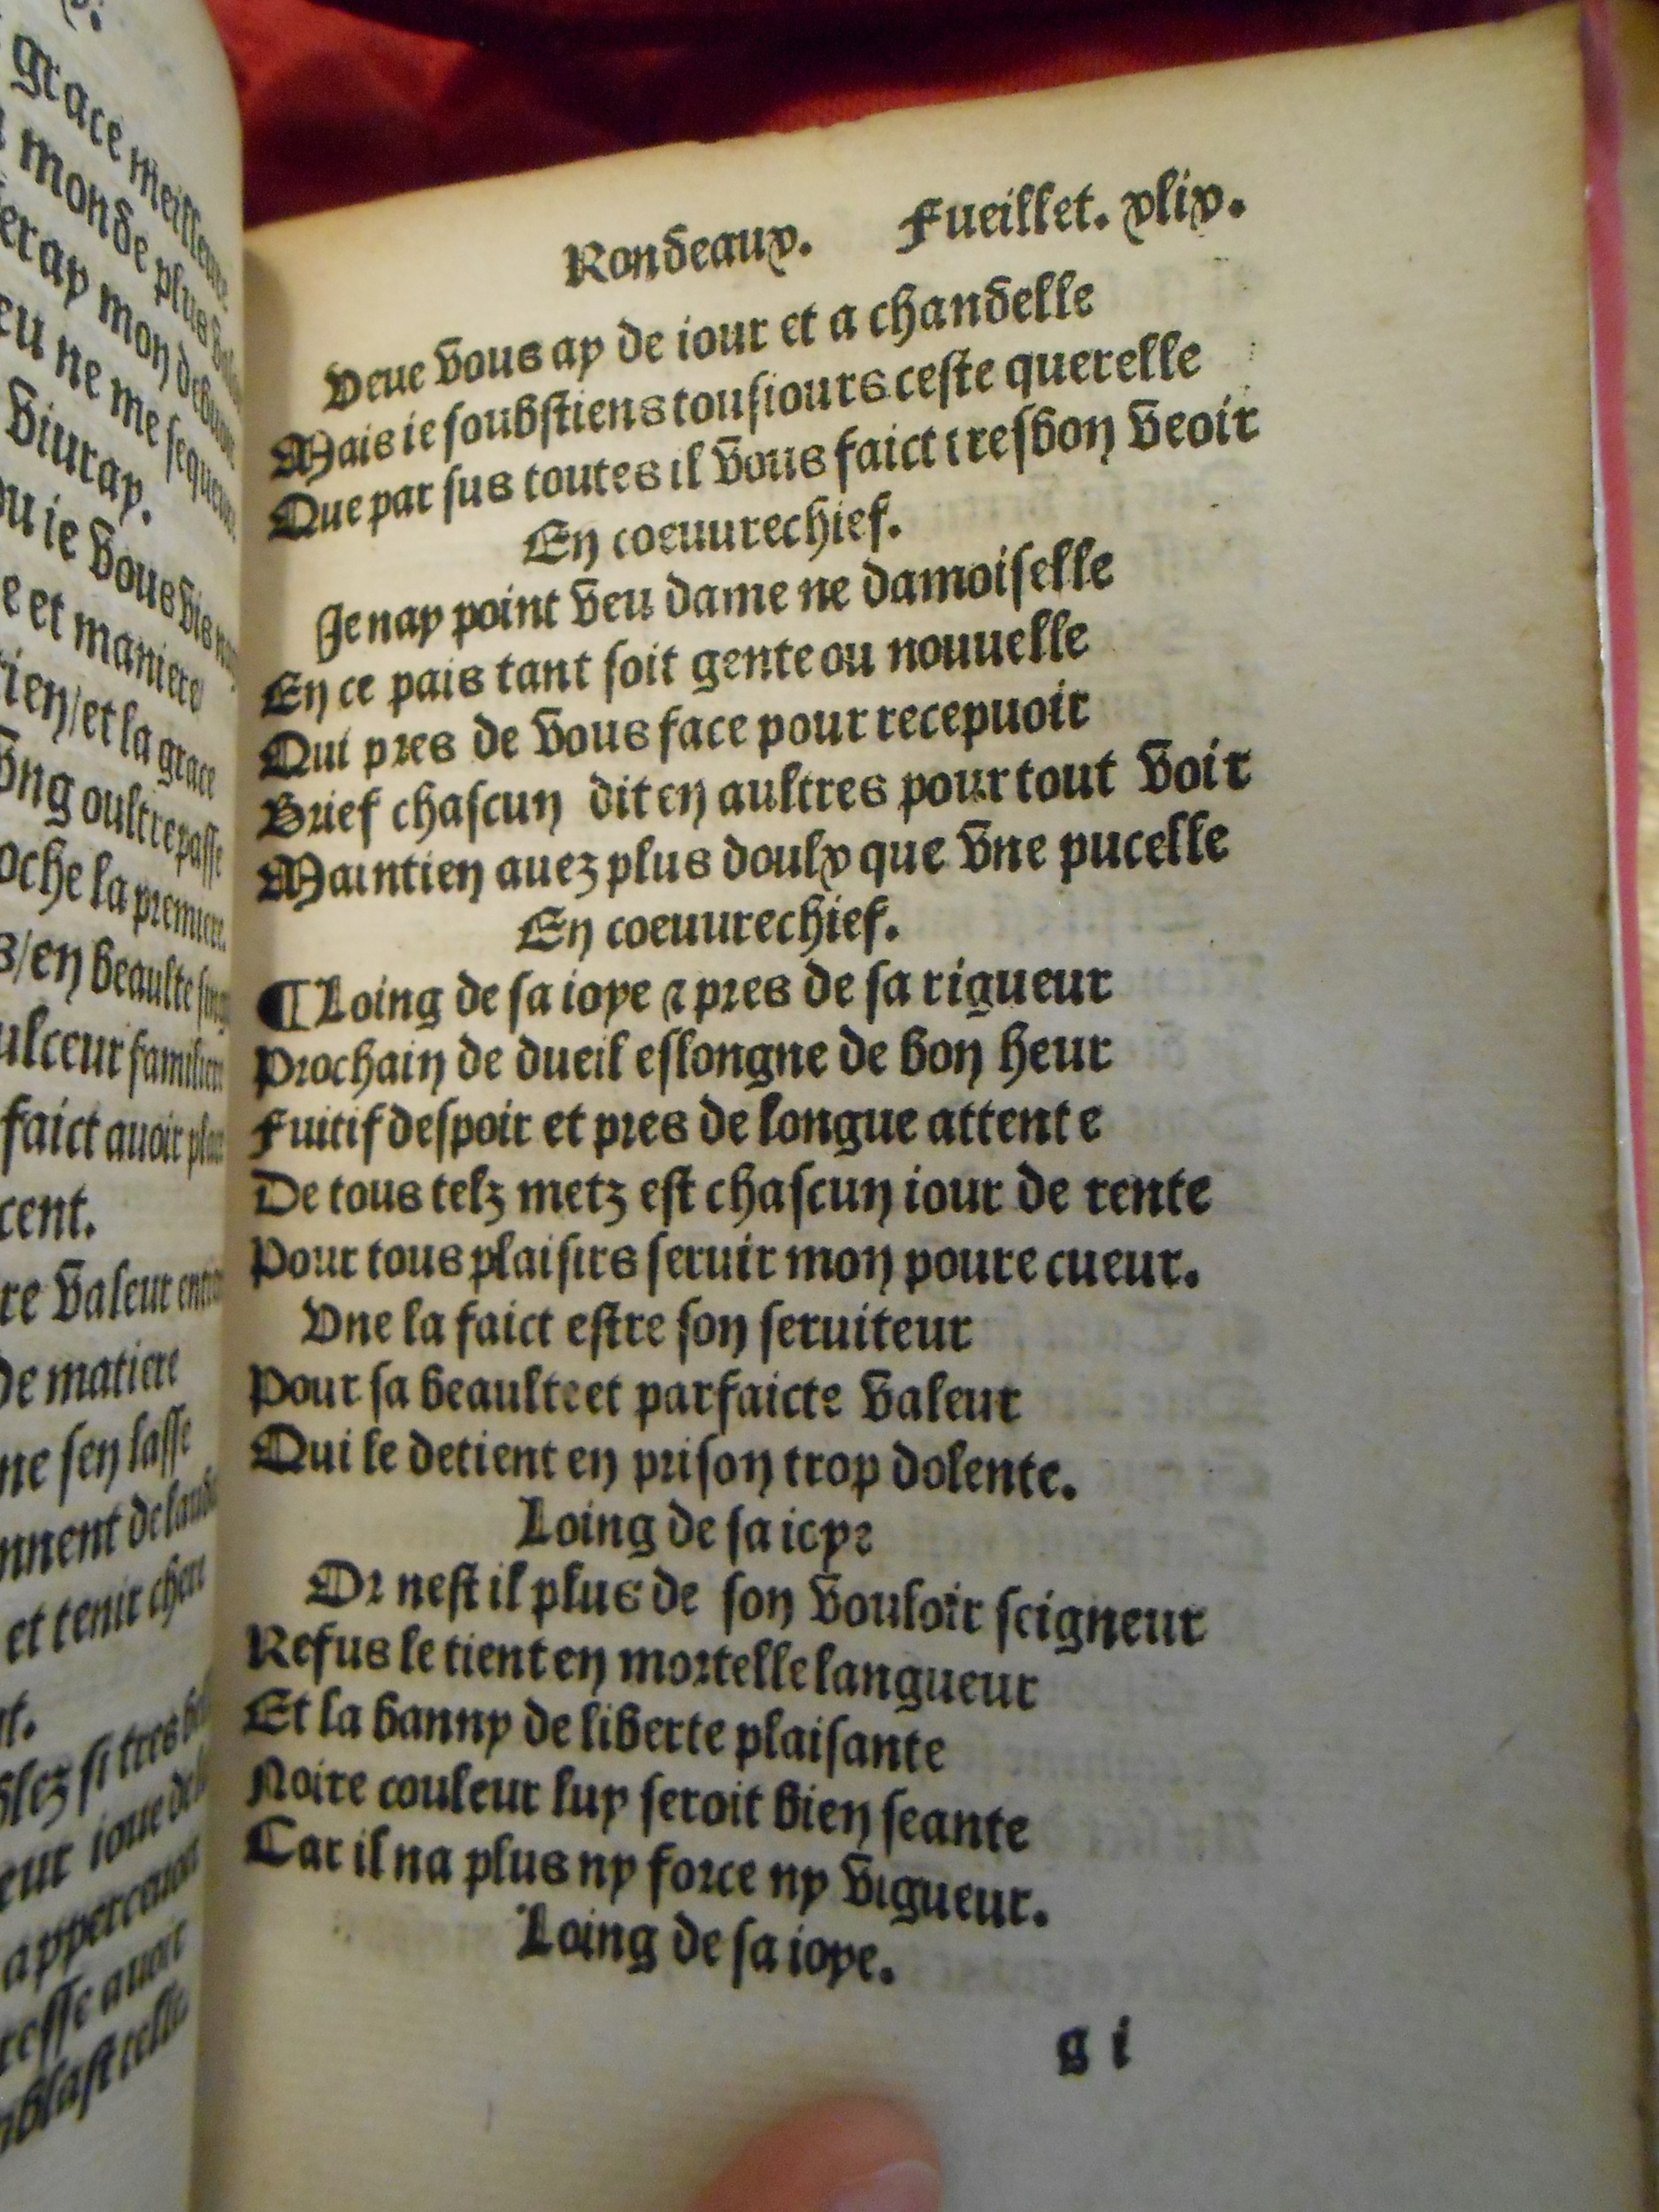 grace meilleure
monde plus
eray mon debuoir
eu ne me
viuray.
ou ie vous
e et maniere
rien/et la grace
vng oultrepasse
oche la premiere
en beaulte
ulceur
faict auoir
cent.
re valeur
de matiere
ne sen lasse
nnent de
et tenir chere
si tres
eur ioue
apperceuoir
auoir
Rondeaux. Fueillet. xlix.
Veue vous ay de iour et a chandelle
Mais ie soubſtiens touſiours ceſte querelle
Que par sus toutes il vous faict treſbon veoir
En coeuurechief.
Je nay point veu dame ne damoiſelle
En ce pais tant ſoit gente ou nouuelle
Qui pres de vous face pour recepuoir
Brief chaſcun dit en aultres pour tout voir
Maintien auez plus doulx que vne pucelle
En coeuurechief.
¶ Loing de ſa ioye ⁊ pres de ſa rigueur
Prochain de dueil eſlongne de bon heur
Fuitif deſpoir et pres de longue attente
De tous telz metz eſt chaſcun iour de rente
Pour tous plaiſirs ſeruir mon poure cueur.
Vne la faict eſtre ſon ſeruiteur
Pour ſa beaulte et parfaicte valeur
Qui le detient en priſon trop dolente.
Loing de ſa ioye
Or neſt il plus de ſon vouloir ſeigneur
Refus le tient en mortelle langueur
Et la banny de liberte plaiſante
Noire couleur luy ſeroit bien ſeante
Car il na plus ny force ny vigueur.
Loing de ſa ioye.
g i